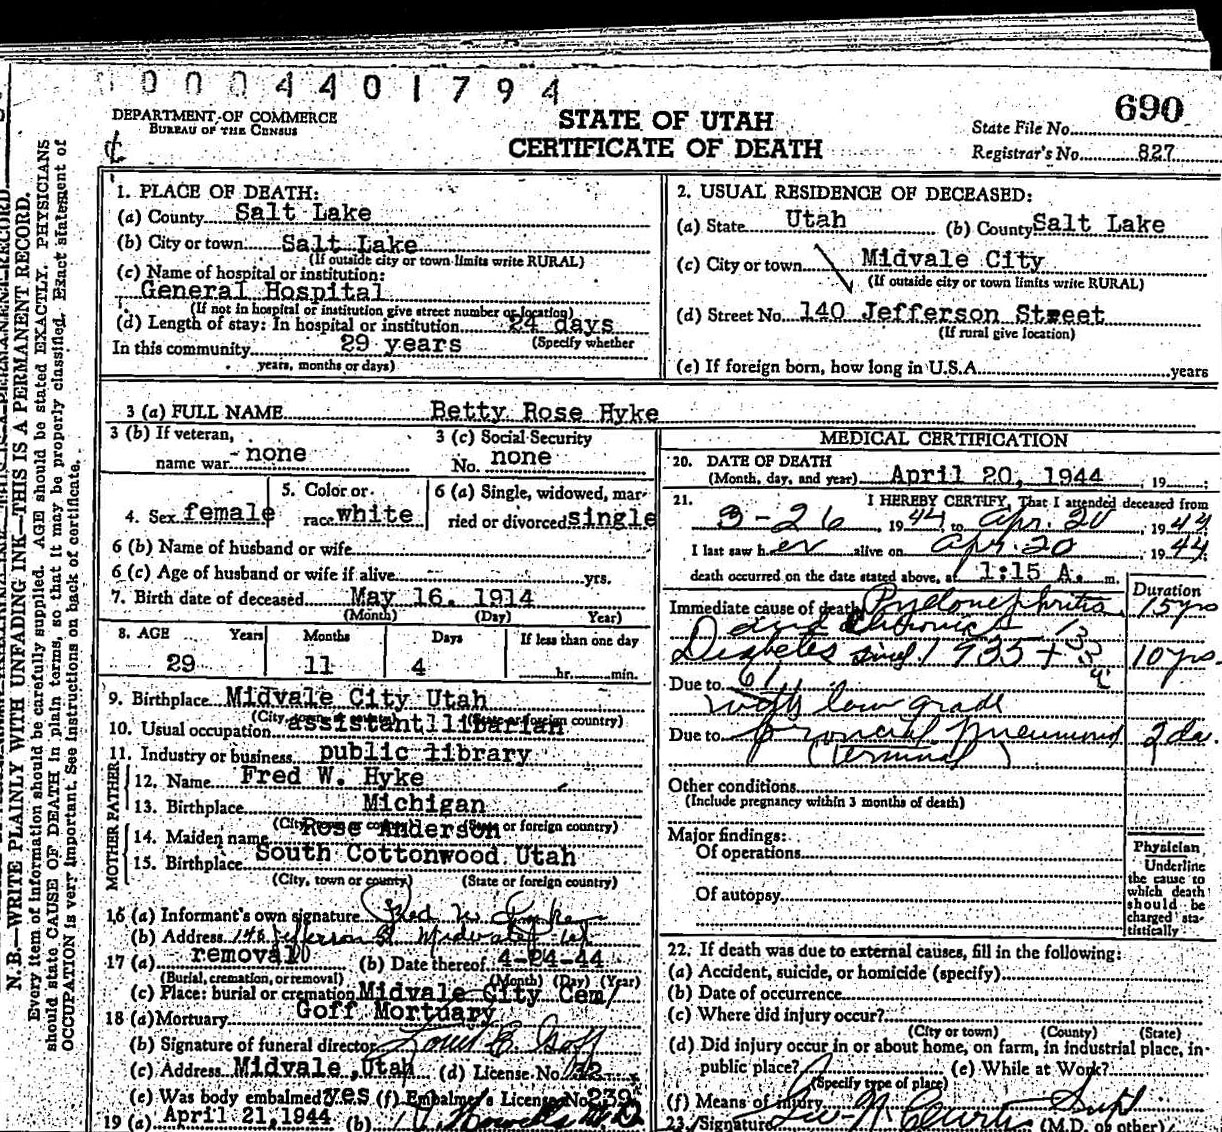 0004401794
DEPARTMENT OF COMMERCE
BUREAU OF THE CENSUS
STATE OF UTAH
CERTIFICATE OF DEATH
690
State File No.
Registrar's No. 827
N. B.—WRITE PLAINLY WITH UNFADING INK—THIS IS A PERMANENT RECORD.
Every item of information should be carefully supplied. AGE should be stated EXACTLY. PHYSICIANS
should state CAUSE OF DEATH in plain terms, so that it may be properly classified. Exact statement of
OCCUPATION is very important. See instructions on back of certificate.
1. PLACE OF DEATH:
(a) County Salt Lake
(b) City or town Salt Lake
(If outside city or town limits write RURAL)
(c) Name of hospital or institution:
General Hospital
(If not in hospital or institution give street number or location)
(d) Length of stay: In hospital or institution 24 days
In this community 29 years (Specify whether
years, months or days)
2. USUAL RESIDENCE OF DECEASED:
(a) State Utah (b) County Salt Lake
(c) City or town Midvale City
(If outside city or town limits write RURAL)
(d) Street No. 140 Jefferson Street
(If rural give location)
(e) If foreign born, how long in U.S.A. years
3 (a) FULL NAME Betty Rose Hyke
3 (b) If veteran,
name war none
3 (c) Social Security
No. none
4. Sex female
5. Color or
race white
6 (a) Single, widowed, mar-
ried or divorced single
6 (b) Name of husband or wife
6 (c) Age of husband or wife if alive yrs.
7. Birth date of deceased May 16. 1914
(Month) (Day) Year)
8. AGE Years Months Days If less than one day
29 11 4 hr. min.
9. Birthplace Midvale City Utah
(City, town or county) (State or foreign country)
10. Usual occupation assistant librarian
11. Industry or business public library
FATHER
12. Name Fred W. Hyke
13. Birthplace Michigan
(City, town or county) (State or foreign country)
MOTHER
14. Maiden name Rose Anderson
15. Birthplace South Cottonwood Utah
(City, town or county) (State or foreign country)
16 (a) Informant's own signature Fred W. Hyke
(b) Address Jefferson St Midvale Ut
17 (a) removal (b) Date thereof 4-24-44
(Burial, cremation, or removal) (Month) (Day) (Year)
(c) Place: burial or cremation Midvale City Cem/
18 (a) Mortuary Goff Mortuary
(b) Signature of funeral director Goff
(c) Address Midvale, Utah (d) License No. 132
(e) Was body embalmed? yes (f) Embalmer's License No. 239
19 (a) April 21, 1944 (b) M.D.
MEDICAL CERTIFICATION
20. DATE OF DEATH
(Month, day, and year) April 20, 1944, 19
21. I HEREBY CERTIFY, That I attended deceased from
3-26, 1944 to Apr. 20, 1944
I last saw her alive on Apr. 20, 1944
death occurred on the date stated above, at 1:15 A. m.
Duration
Immediate cause of death Pyelonephritis 15 yrs
and chronic
Diabetes since 1935 + 10 yrs.
Due to 61
with low grade
Due to broncial pneumonia 2 da.
(terminal)
Other conditions
(Include pregnancy within 3 months of death)
Major findings:
Of operations
Of autopsy
Physician
Underline
the cause to
which death
should be
charged sta-
tistically
22. If death was due to external causes, fill in the following:
(a) Accident, suicide, or homicide (specify)
(b) Date of occurrence
(c) Where did injury occur?
(City or town) (County) (State)
(d) Did injury occur in or about home, on farm, in industrial place, in
public place? (e) While at Work?
(Specify type of place)
(f) Means of injury Supt
23. Signature (M.D. or other)